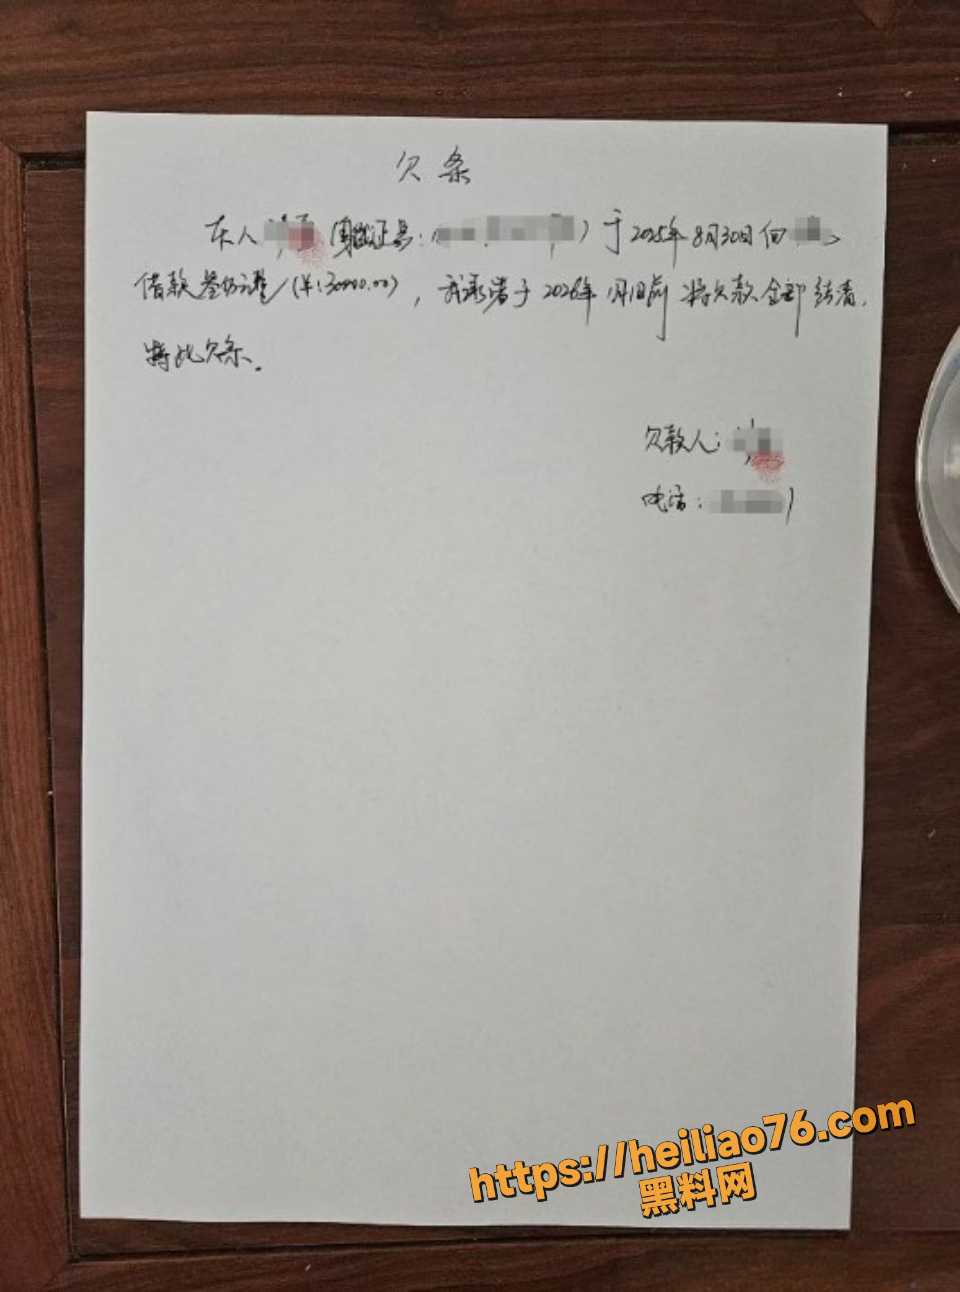 欠条
本人 身份证号:( )于2025年8月30日向
借款叁万元整(¥:30000.00),我承诺于2026年1月1日前将欠款全部结清.
特此欠条.
欠款人:
电话:
https://heiliao76.com
黑料网